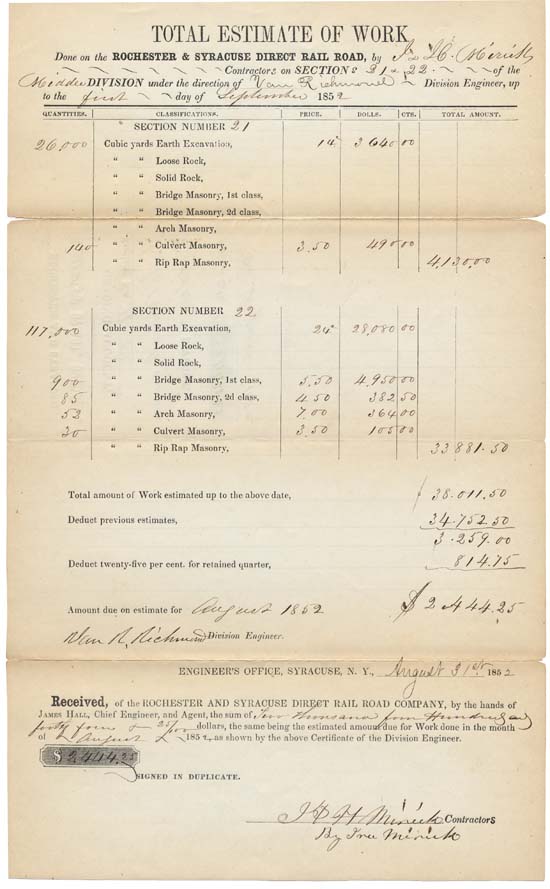 TOTAL ESTIMATE OF WORK
Done on the ROCHESTER & SYRACUSE DIRECT RAIL ROAD, by J & H. Mirick
Contractors on SECTIONs 21 & 22 of the
Middle DIVISION under the direction of Van Richmond Division Engineer, up
to the first day of September 1852
QUANTITIES. CLASSIFICATIONS. PRICE. DOLLS. CTS. TOTAL AMOUNT.
SECTION NUMBER 21
26,000 Cubic yards Earth Excavation, 14 3640 00
" " Loose Rock,
" " Solid Rock,
" " Bridge Masonry, 1st class,
" " Bridge Masonry, 2d class,
" " Arch Masonry,
140 " " Culvert Masonry, 3.50 490 00
" " Rip Rap Masonry, 4,130.00
SECTION NUMBER 22
117,000 Cubic yards Earth Excavation, 24 28,080 00
" " Loose Rock,
" " Solid Rock,
900 " " Bridge Masonry, 1st class, 5.50 4,950 00
85 " " Bridge Masonry, 2d class, 4.50 382 50
52 " " Arch Masonry, 7.00 364 00
30 " " Culvert Masonry, 3.50 105 00
" " Rip Rap Masonry, 33 881.50
Total amount of Work estimated up to the above date, 38.011.50
Deduct previous estimates, 34.752.50
3.259.00
Deduct twenty-five per cent. for retained quarter, 814.75
Amount due on estimate for August 1852 $2,444.25
Van R. Richmond Division Engineer.
ENGINEER'S OFFICE, SYRACUSE, N. Y., August 31st 1852
Received, of the ROCHESTER AND SYRACUSE DIRECT RAIL ROAD COMPANY, by the hands of
JAMES HALL, Chief Engineer, and Agent, the sum of Two thousand four Hundred and
forty four & 25/100 dollars, the same being the estimated amount due for Work done in the month
of August 1852, as shown by the above Certificate of the Division Engineer.
$2444.25
SIGNED IN DUPLICATE.
J & H Mirick Contractors
By Ira Mirick